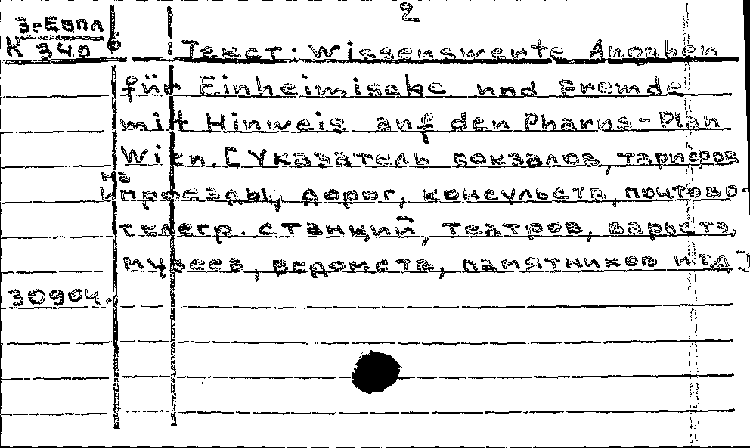 2
3-Евпл
К 340
Текст: Wissenswerte Angaben
für Einheimische und Fremde
mit Hinweis auf den Pharus-Plan
Wien. [Указатель вокзалов, тарифов
на
проезды, дорог, консульств, почтово-
телегр. станций, театров, варьетэ,
музеев, ведомств, памятников и т.д.]
30904.